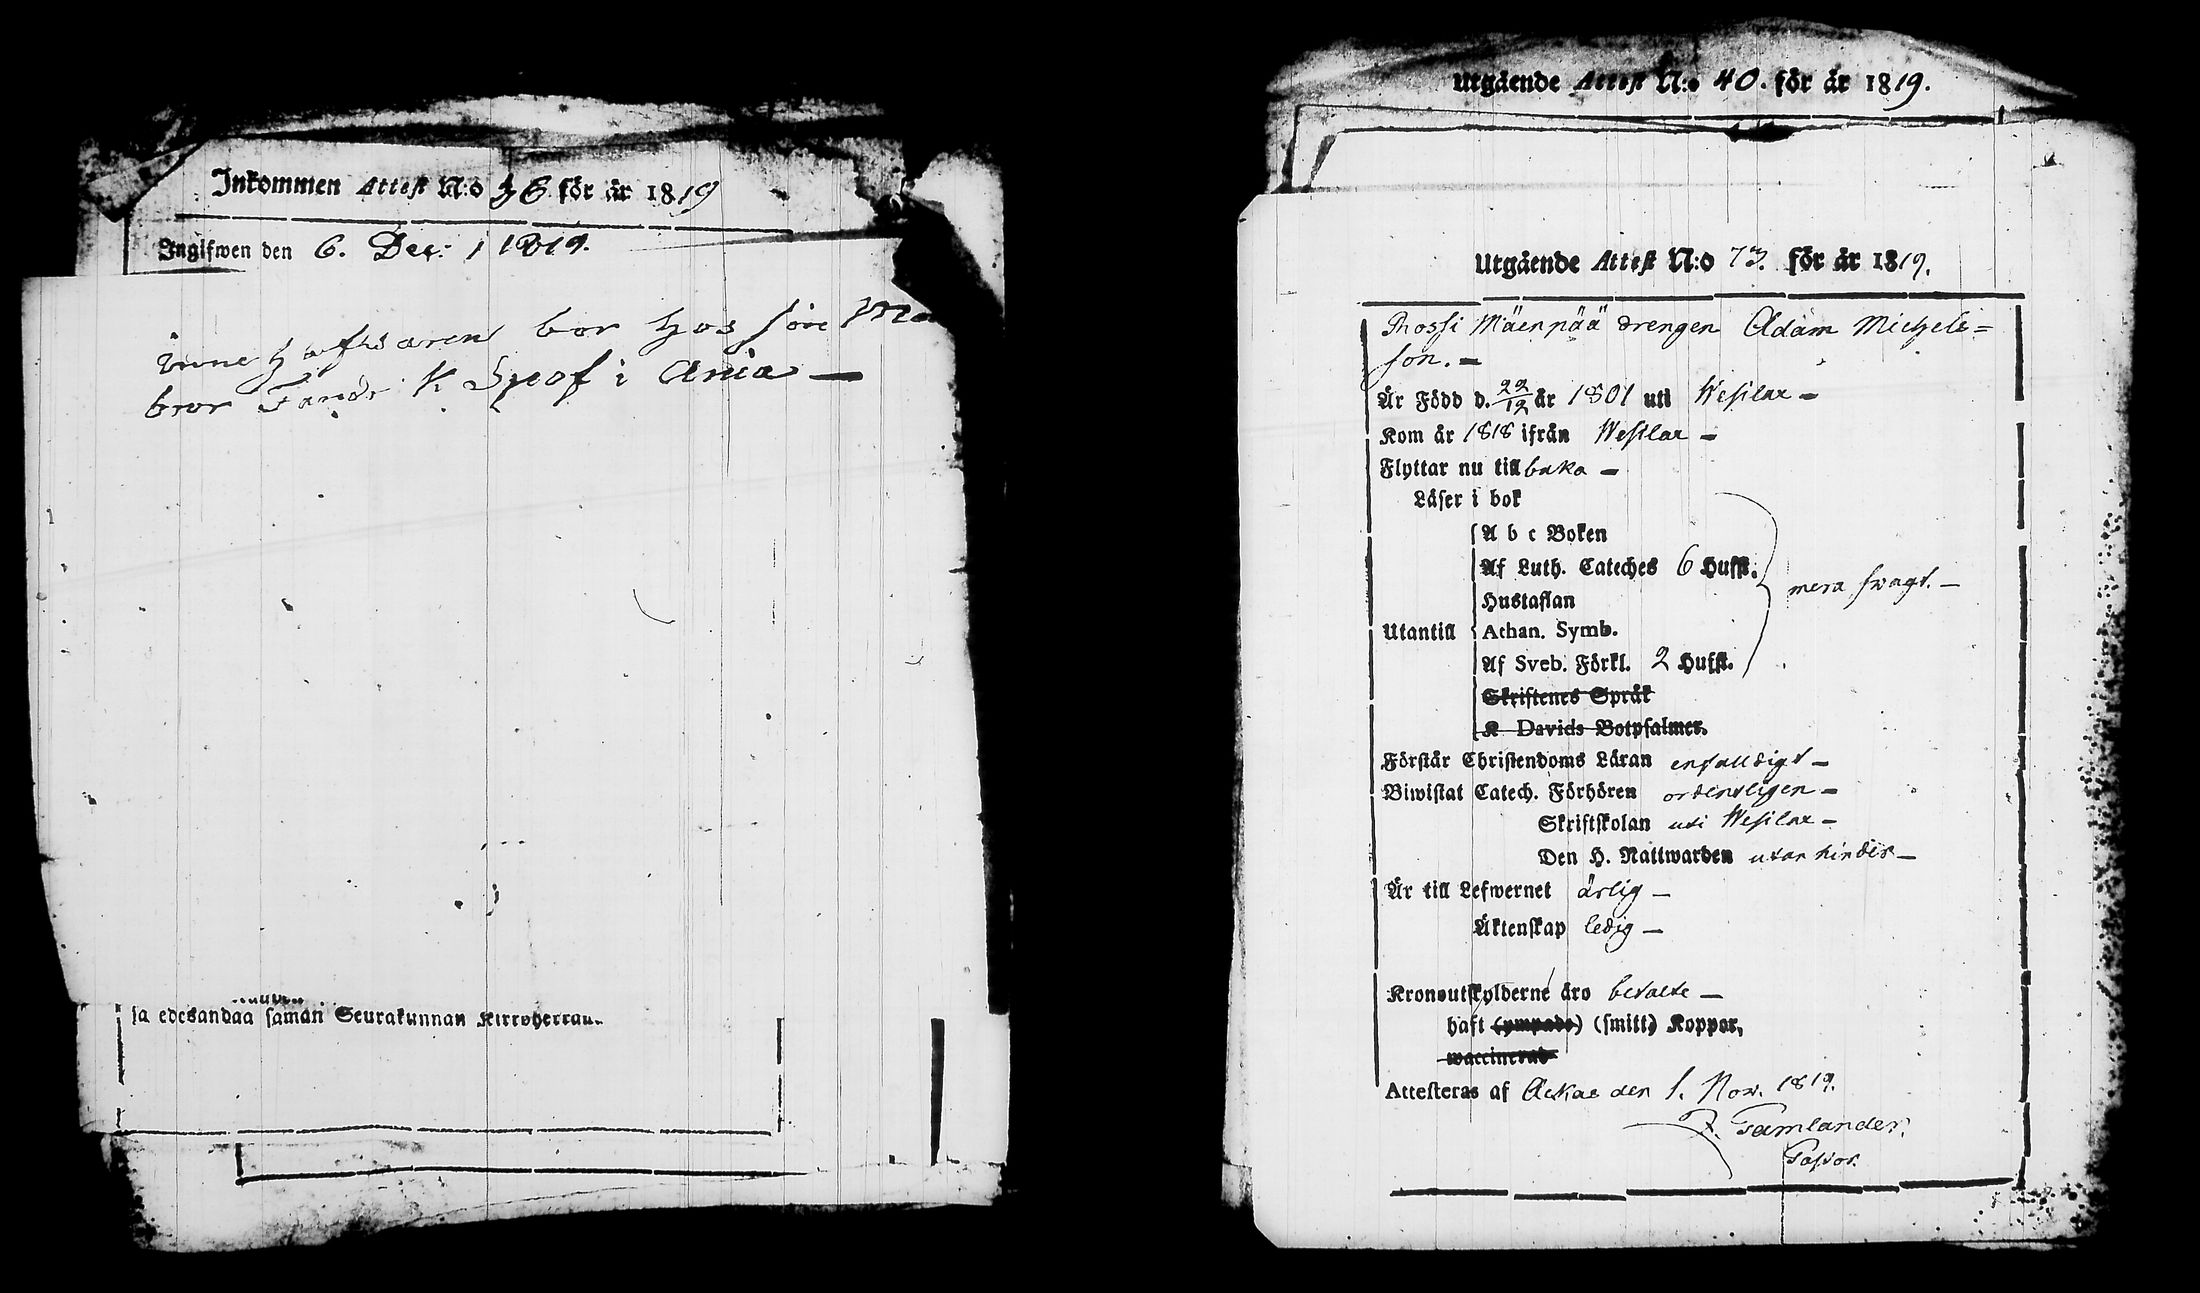 Inkommen Attest N:o 36 för år 1819
Ingifwen den 6. Dec: 1819.
bor hos
bror K Spof i Ania —
ja edesandaa saman Seurakunnan Kirkoherran.
Utgående Attest N:o 40. för år 1819.
Utgående Attest N:o 73. för år 1819.
Mäenpää drengen Adam Michels=
son. —
Är Född d. 22/12 år 1801 uti Wesilax —
Kom år 1818 ifrån Wesilax —
Flyttar nu tillbaka —
Läser i bok
A b c Boken
Af Luth. Cateches 6 Hufst.
mera swagt. —
Hustaflan
Utantill Athan. Symb.
Af Sveb. Förkl. 2 Hufst.
Skriftenes Språk
K Davids Botpsalmer.
Förstår Christendoms Läran enfalldigt —
Biwistat Catech. Förhören ordentligen —
Skriftskolan uti Wesilax —
Den H. Nattwarden utan hinder —
Är till Lefwernet ärlig —
Äktenskap ledig —
Kronoutskylderne äro betalte —
haft (ympade) (smitt) Koppor,
waccinerad
Attesteras af Ackas den 1. Nov. 1819.
F. Gamlander.
Pastor.